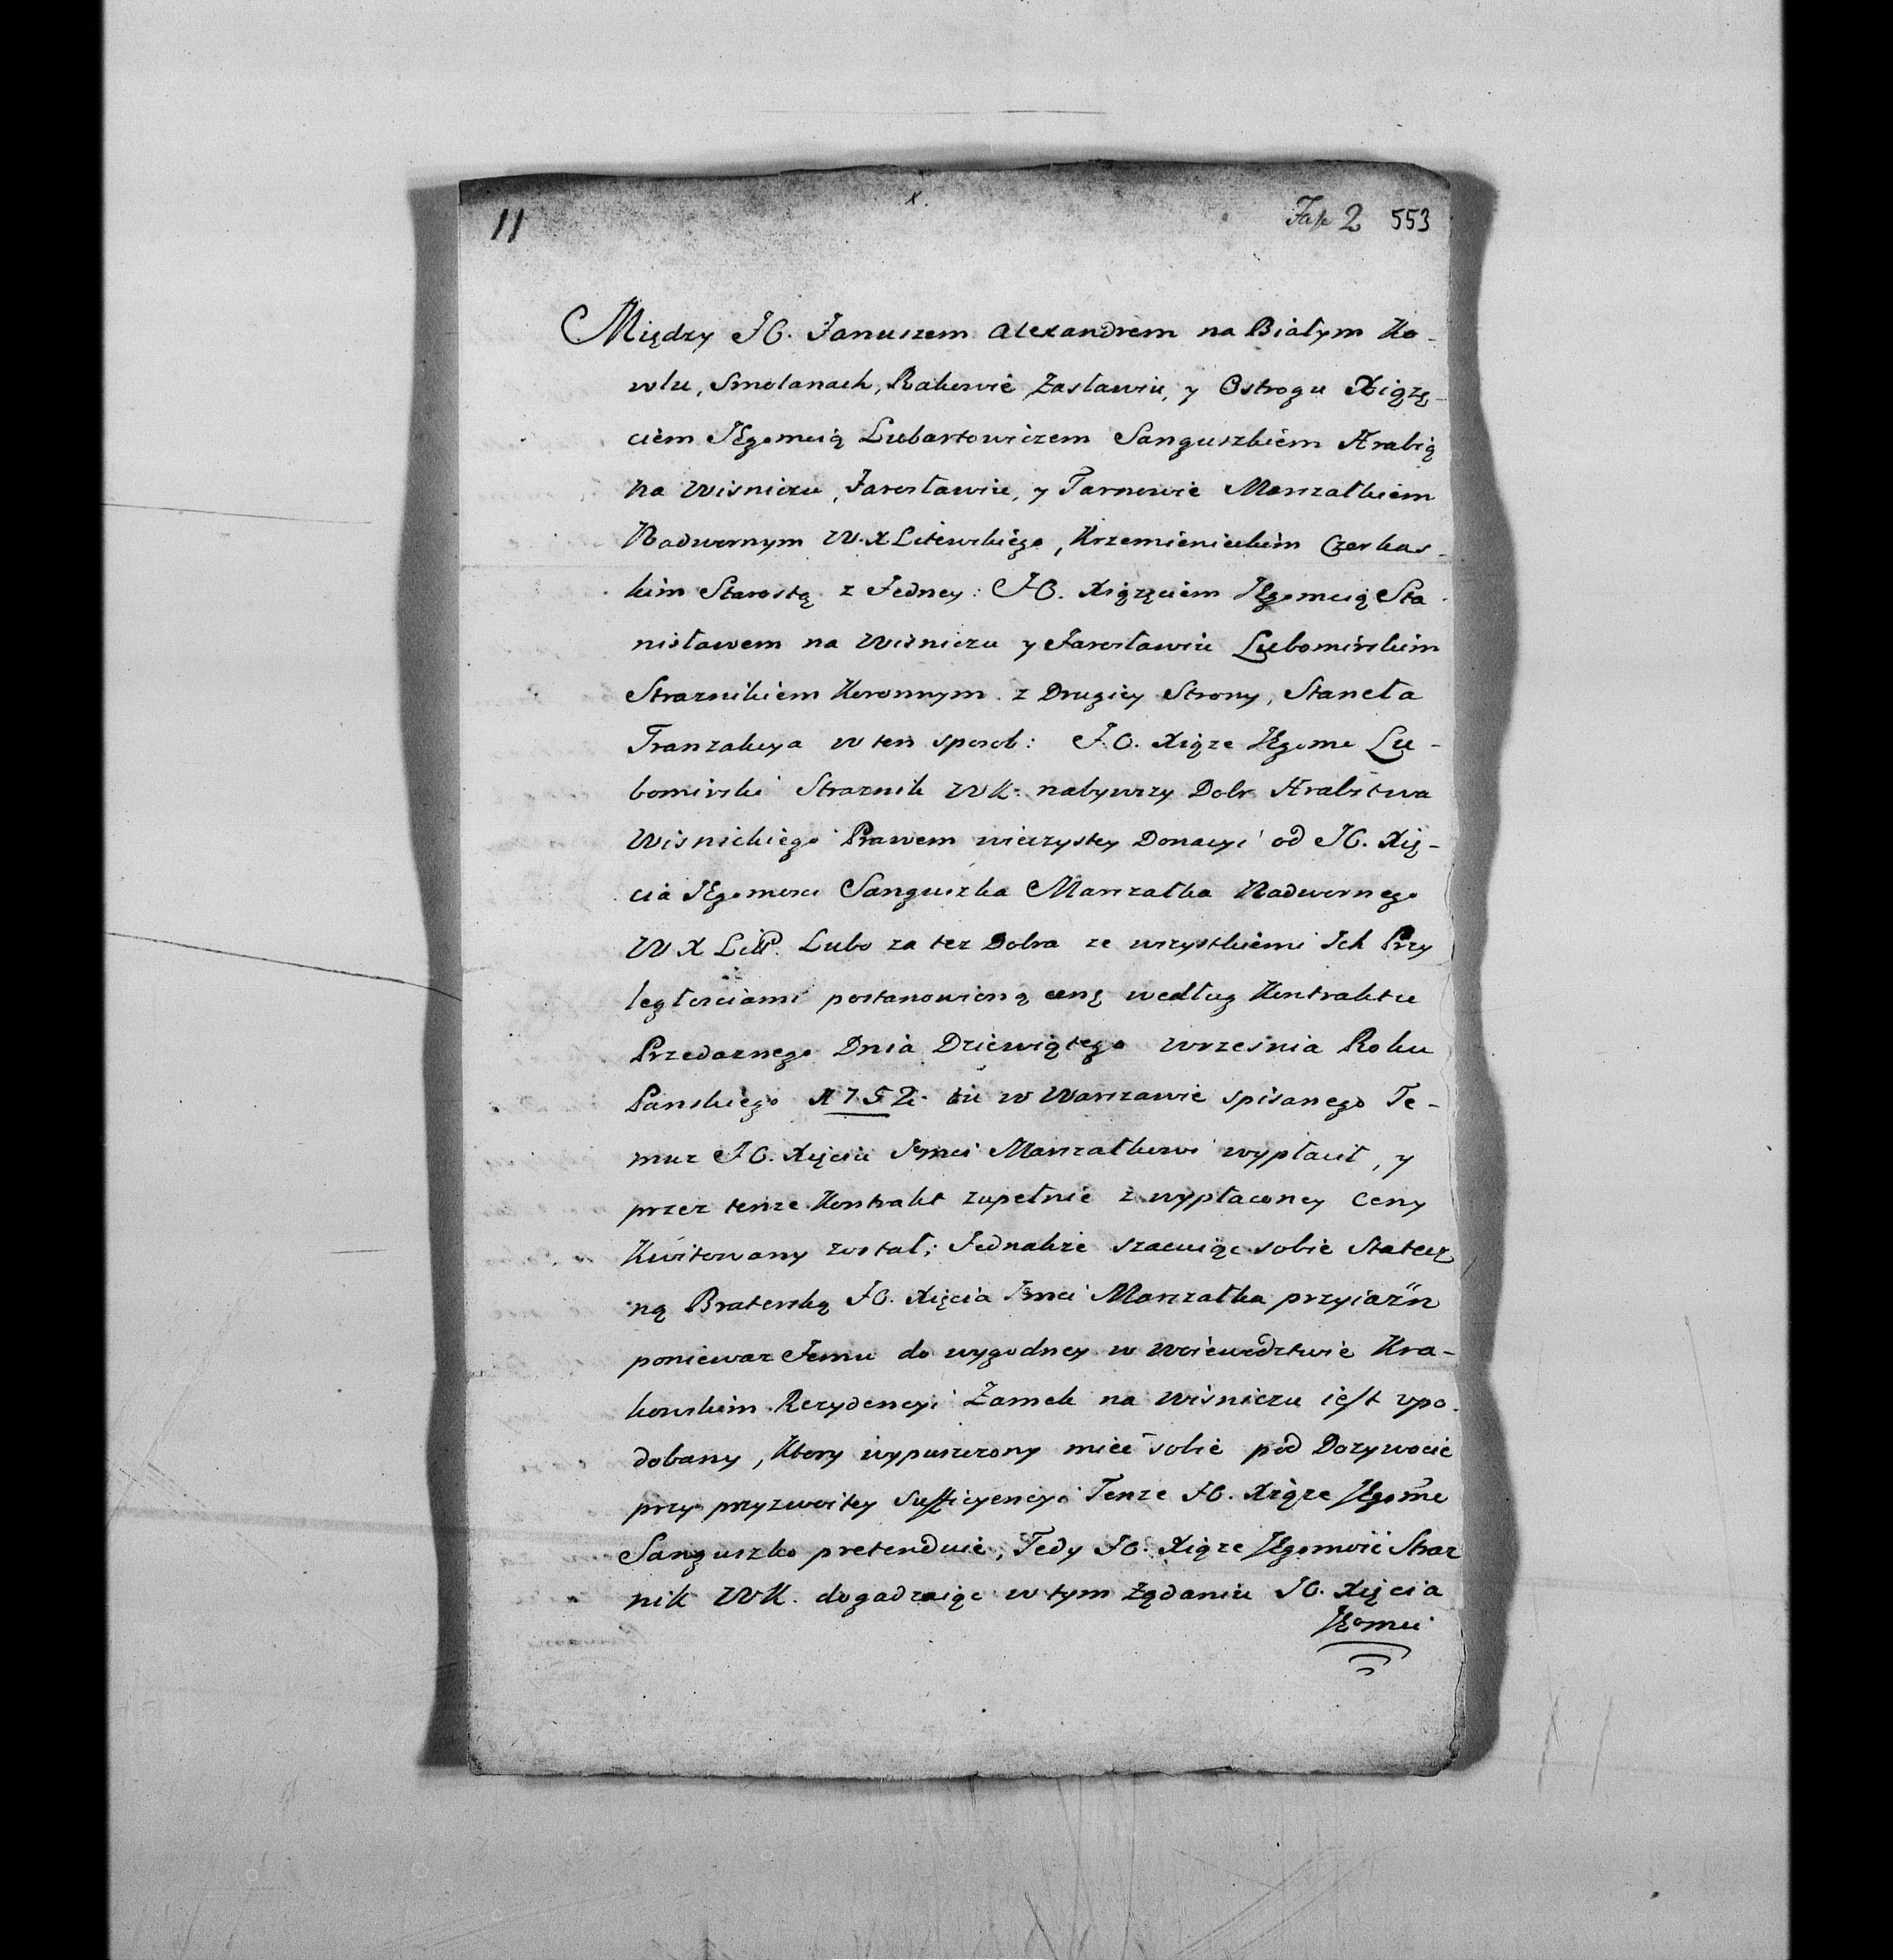 11
x.
Fasc 2 553
Między JO. Januszem Alexandrem na Białym Ko-
wlu, Smolanach, Rakowie Zasławiu, y Ostrogu Xiązę-
ciem JEgomcią Lubartowiczem Sanguszkiem Hrabią
na Wisniczu, Jarosławiu, y Tarnowie Marszałkiem
Nadwornym W. X Litewskiego, Krzemienieckim Czerkas-
kim Starostą z Jedney: JO. Xiązęciem JEgomcią Sta
nisławem na Wisniczu y Jarosławiu Lubomirskim
Straznikiem Koronnym z Drugiey Strony, Staneła
Tranzakcya w ten sposob: J.O. Xiąze JEgomc Lu-
bomirski Straznik WK. nabywszy Dobr Hrabstwa
Wisnickiego Prawem wieczystey Donacyi od JO. Xię-
cia JEgomosci Sanguszka Marszałka Nadwornego
W X Litt. Lubo za tez Dobra ze wszystkiemi Ich Przy
ległosciami postanowioną cenę według Kontraktu
Przedaznego Dnia Dziewiątego Wrzesnia Roku
Panskiego 1752. tu w Warszawie spisanego Te-
muz JO. Xięciu Jmci Marszałkowi wypłacił, y
przez tenze Kontrakt zupełnie z wypłaconey Ceny
Kwitowany został; Jednakze szacuiąc sobie Statecz
ną Braterską JO. Xięcia Jmci Marszałka przyiaźn
poniewaz Jemu do wygodney w Woiewodztwie Kra-
kowskim Rezydencyi Zamek na Wisniczu iest upo-
dobany, Ktory wypuszczony mieć sobie pod Dozywocie
przy przyzwoitey Sufficyencyi Tenze JO. Xiąze JEgomc
Sanguszko pretenduie; Tedy JO. Xiąze JEgomość Straz
nik WK. dogadzaiąc w tym Ządaniu JO. Xięcia
JEomci